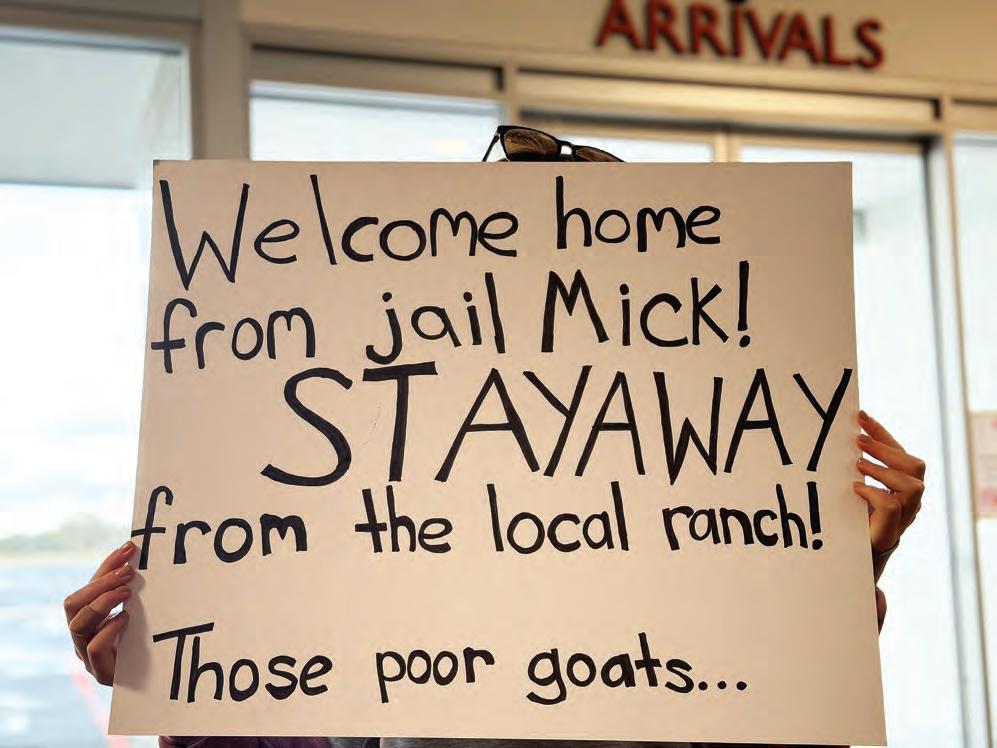 ARRIVALS
Welcome home
from jail Mick!
STAYAWAY
from the local ranch!
Those poor goats...